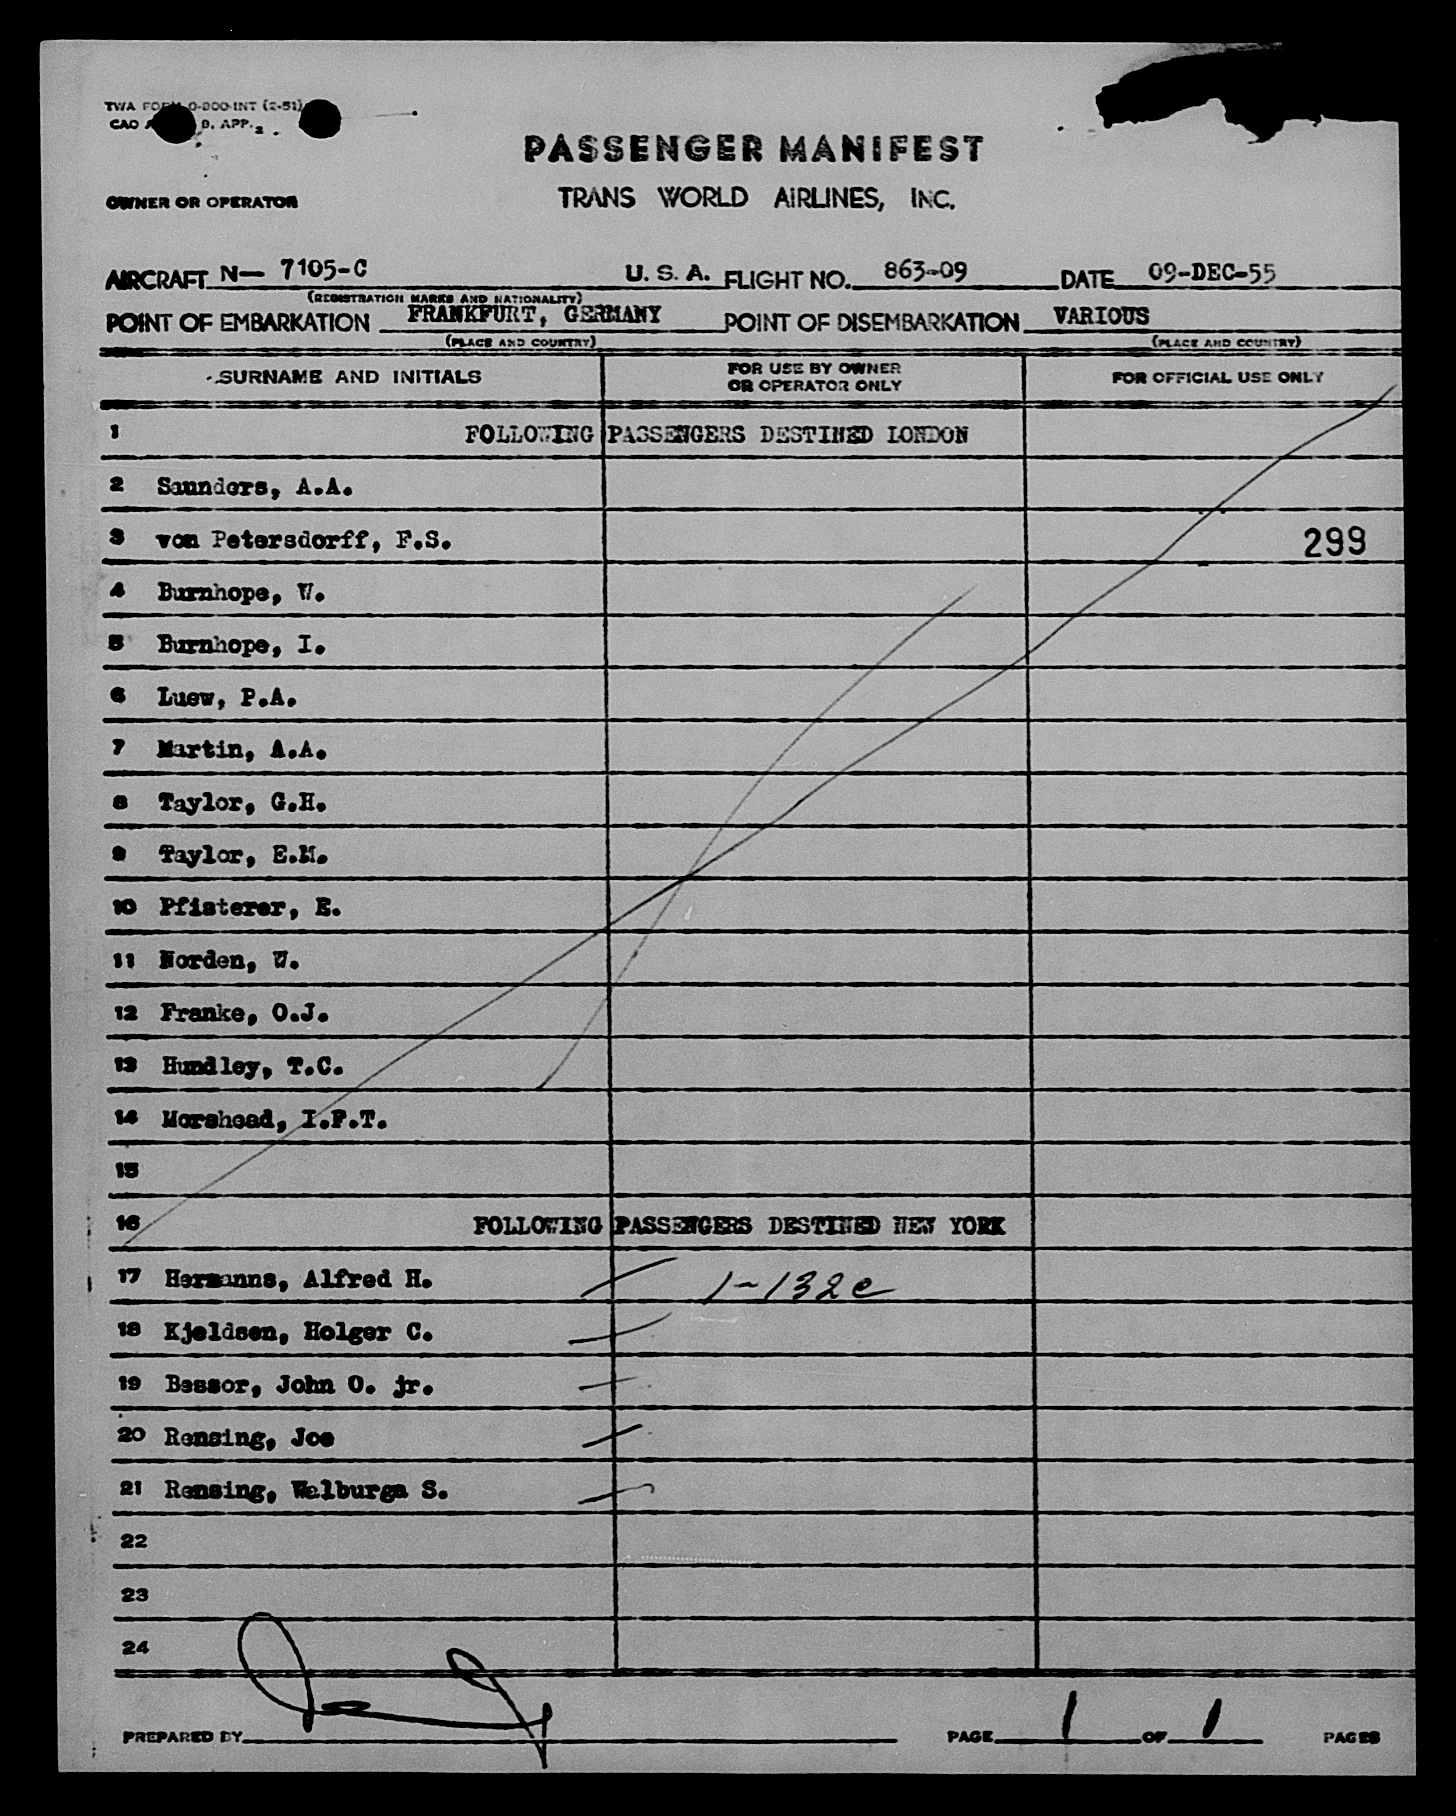 TWA FORM O-200-INT (2-51)
CAO 9, APP. 2
PASSENGER MANIFEST
OWNER OR OPERATOR
TRANS WORLD AIRLINES, INC.
AIRCRAFT N— 7105-C U. S. A. FLIGHT NO. 863-09 DATE 09-DEC-55
(REGISTRATION MARKS AND NATIONALITY)
POINT OF EMBARKATION FRANKFURT, GERMANY POINT OF DISEMBARKATION VARIOUS
(PLACE AND COUNTRY) (PLACE AND COUNTRY)
SURNAME AND INITIALS FOR USE BY OWNER OR OPERATOR ONLY FOR OFFICIAL USE ONLY
1 FOLLOWING PASSENGERS DESTINED LONDON
2 Saunders, A.A.
3 von Petersdorff, F.S. 299
4 Burnhope, W.
5 Burnhope, I.
6 Luew, P.A.
7 Martin, A.A.
8 Taylor, G.H.
9 Taylor, E.M.
10 Pfisterer, E.
11 Norden, W.
12 Franke, O.J.
13 Hundley, T.C.
14 Morshead, I.P.T.
15
16 FOLLOWING PASSENGERS DESTINED NEW YORK
17 Hermanns, Alfred H. 1-132c
18 Kjeldsen, Holger C.
19 Bessor, John O. jr.
20 Rensing, Joe
21 Rensing, Walburga S.
22
23
24
PREPARED BY PAGE 1 OF 1 PAGES